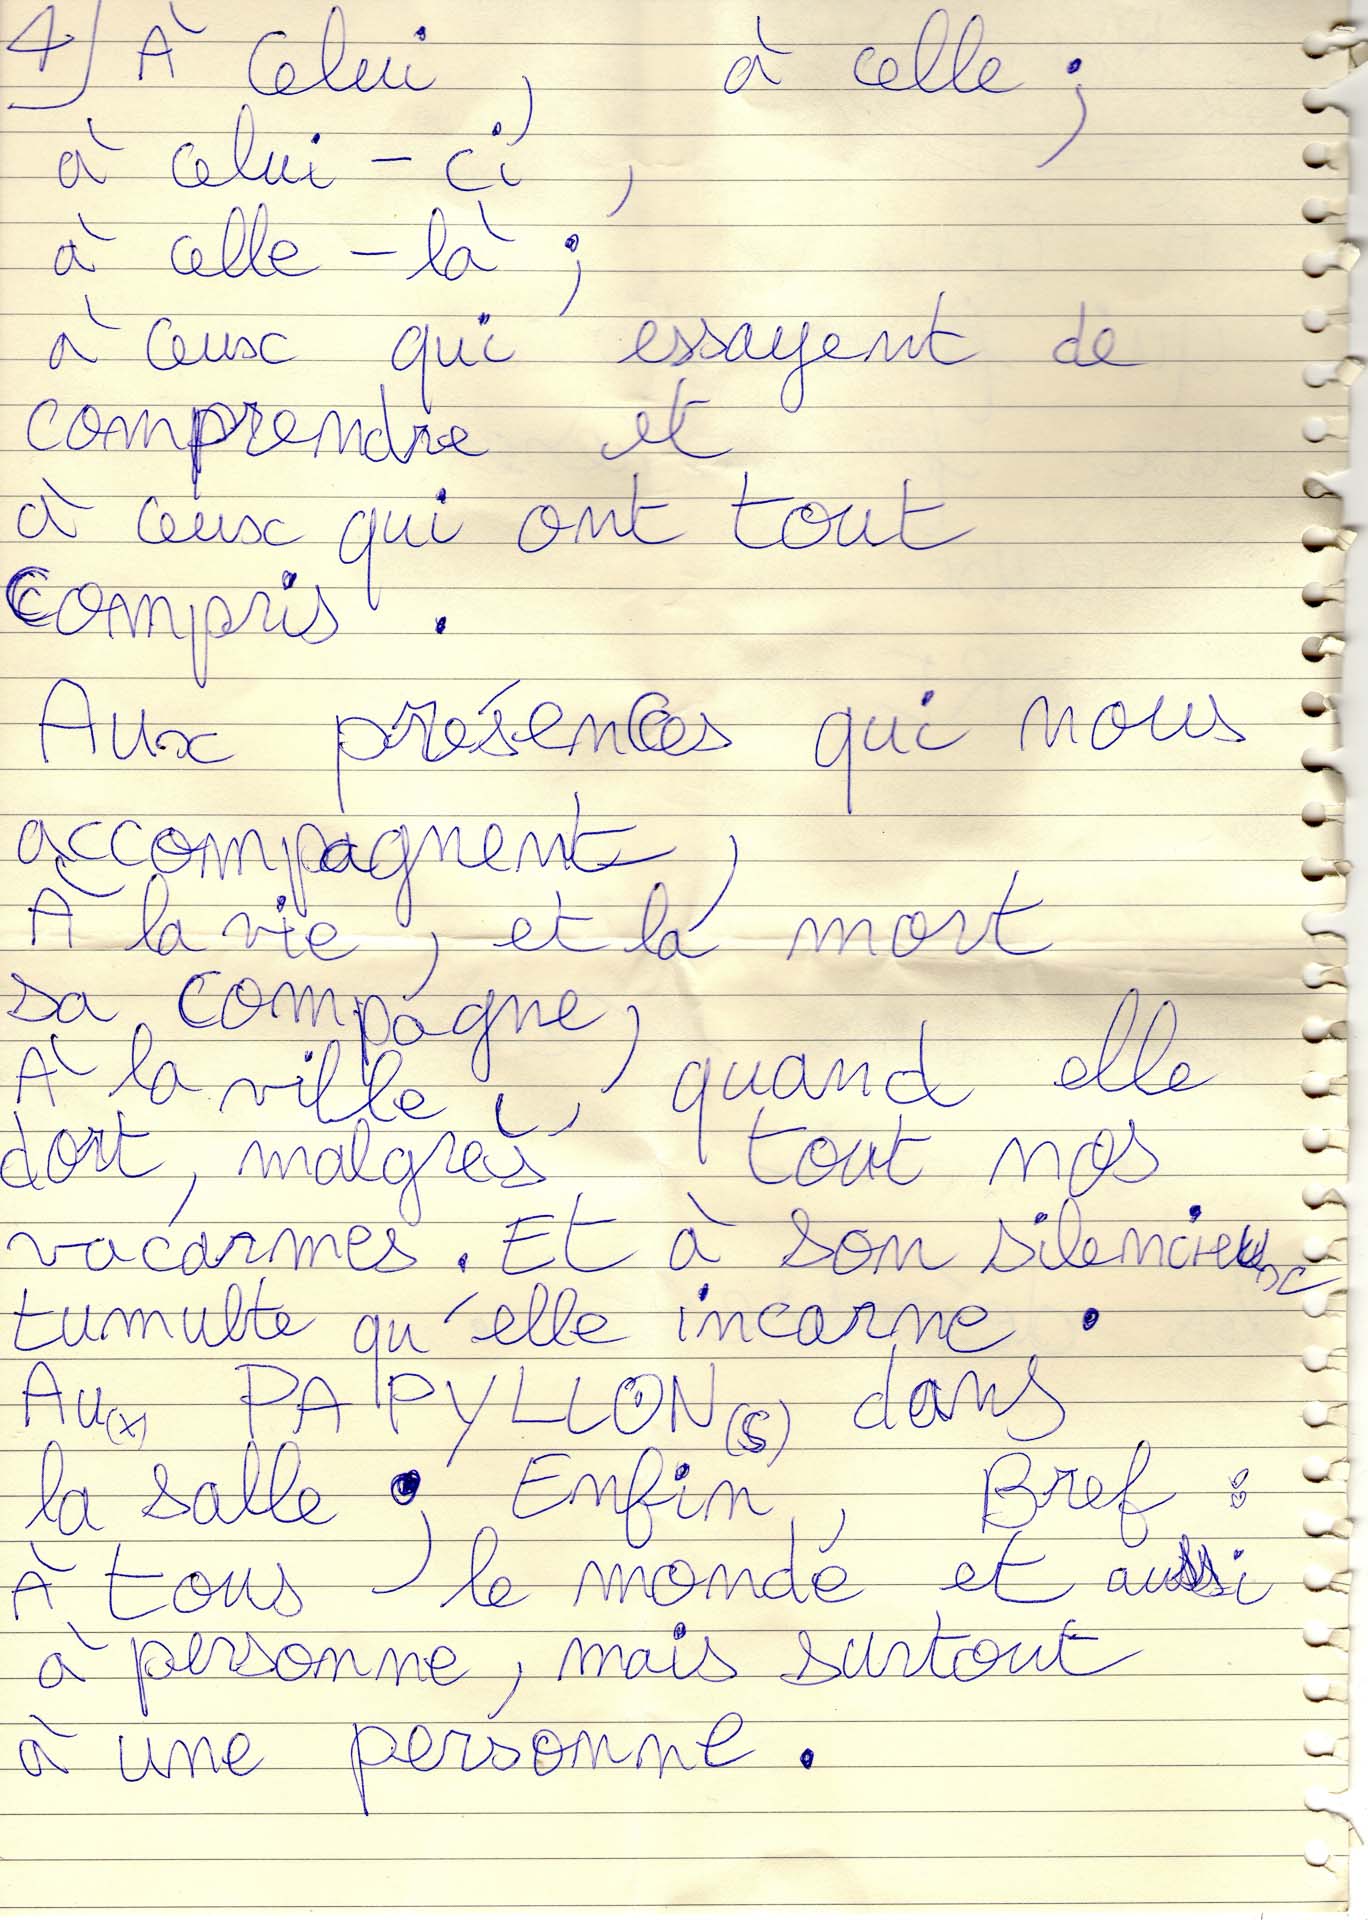 4) À celui, à celle ;
à celui-ci,
à celle-là ;
à ceux qui essayent de
comprendre et
à ceux qui ont tout
compris.
Aux présences qui nous
accompagnent,
À la vie, et la mort
sa compagne,
À la ville, quand elle
dort, malgrès tout nos
vacarmes. Et à son silencieux
tumulte qu'elle incarne.
Au(x) PAPYLLON(S) dans
la salle ; Enfin, Bref :
À tous le monde et aussi
à personne, mais surtout
à une personne.